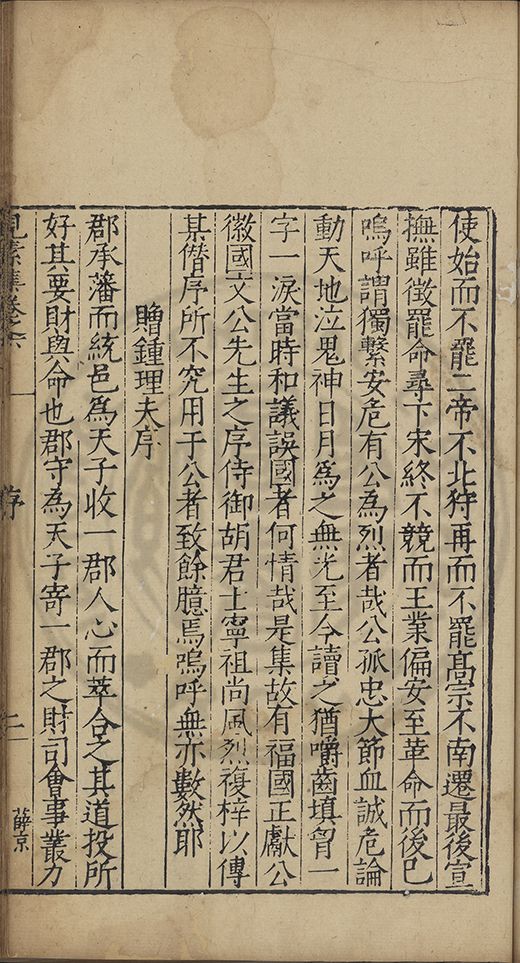 使始而不罷二帝不北狩再而不罷高宗不南遷最後宣
撫雖徵罷命尋下宋終不競而王業偏安至革命而後已
嗚呼謂獨繫安危有公為烈者哉公孤忠大節血誠危論
動天地泣鬼神日月爲之無光至今讀之猶嚼齒填胷一
字一淚當時和議誤國者何情哉是集故有福國正獻公
徽國文公先生之序侍御胡君士寧祖尚風烈複梓以傳
某僭序所不究用于公者致餘臆焉嗚呼無亦數然耶
贈鍾理夫序
郡承藩而統邑爲天子收一郡人心而萃合之其道投所
好其要財與命也郡守為天子寄一郡之財司會事叢力
見素集卷之六
序
二
薛京